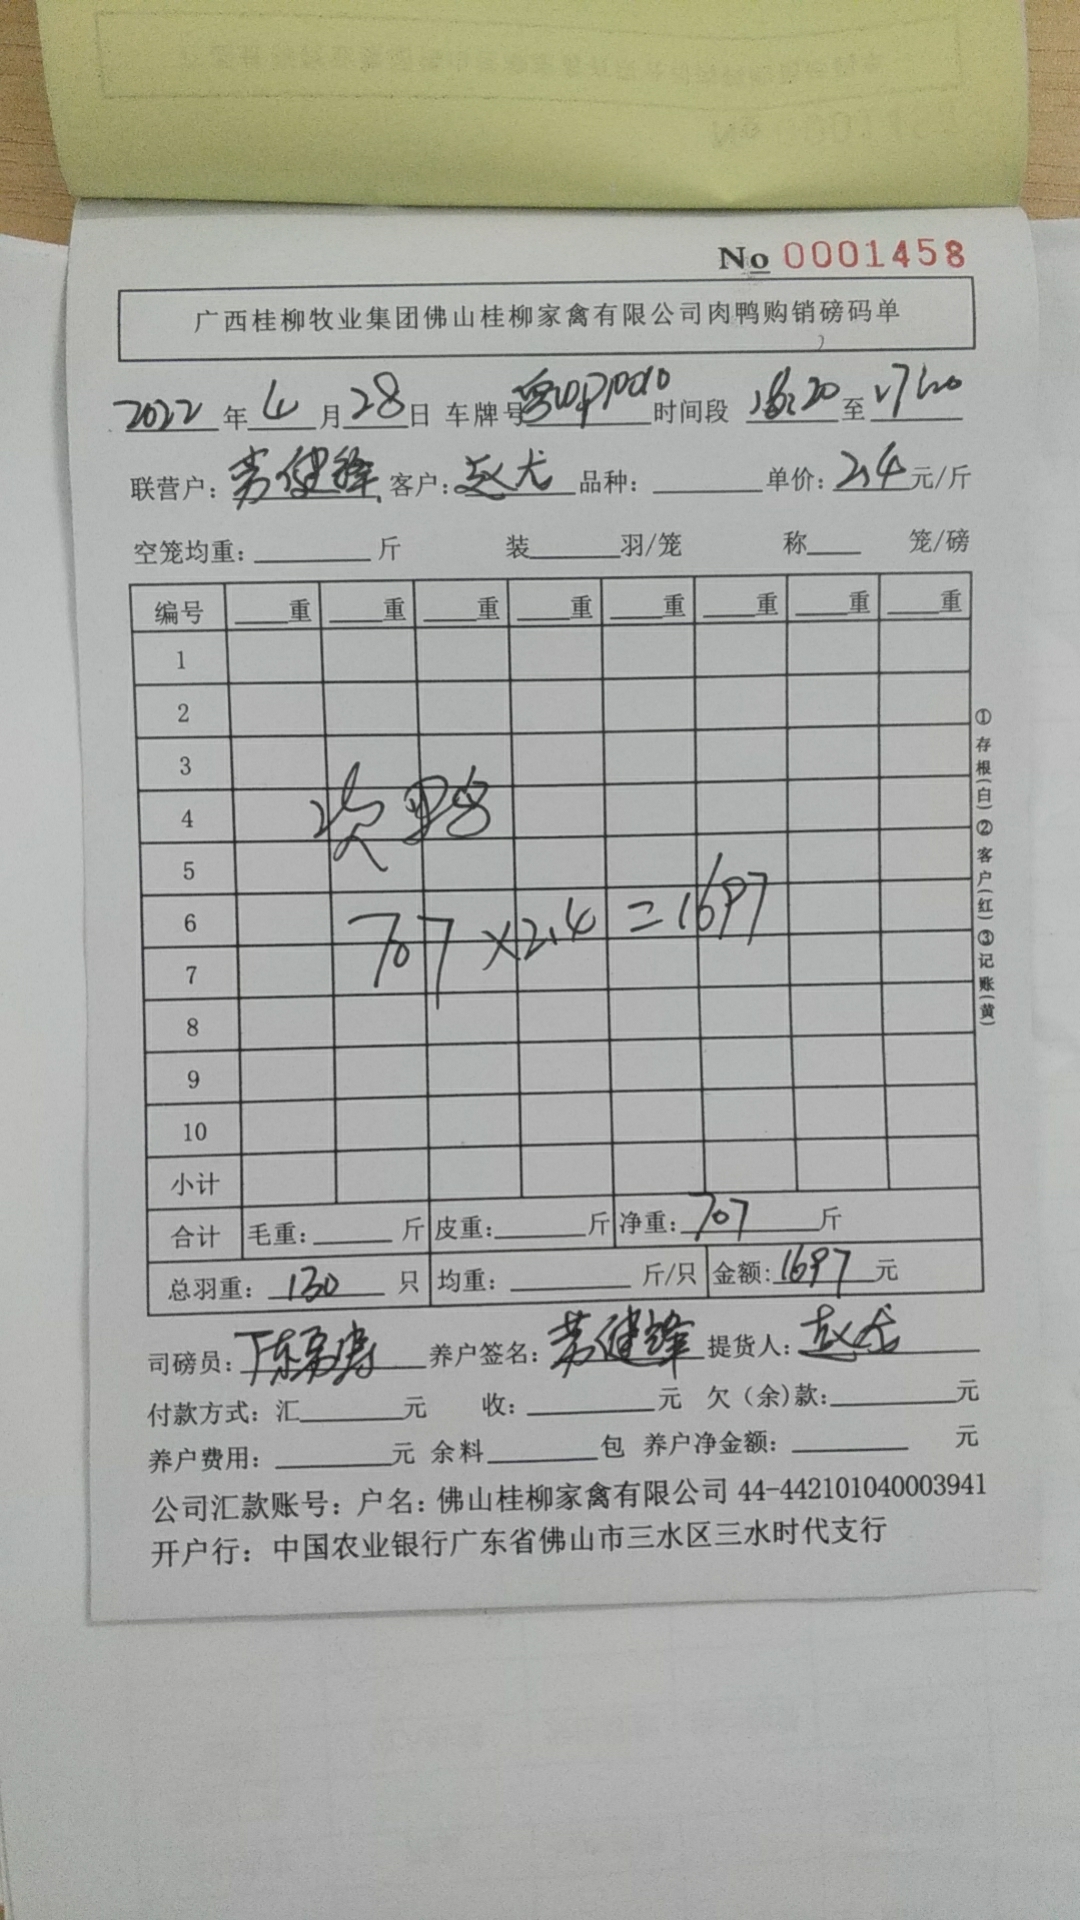 No 0001458
广西桂柳牧业集团佛山桂柳家禽有限公司肉鸭购销磅码单
2022年4月28日 车牌号 时间段 16:20至17:00
联营户：劳健锋 客户：赵尤 品种：____单价：2.4元/斤
空笼均重：____斤 装____羽/笼 称____笼/磅
编号 ____重 ____重 ____重 ____重 ____重 ____重 ____重 ____重
1
2
3
4
5
次鸭
6
707×2.4=1697
7
8
9
10
小计
合计 毛重：____斤 皮重：____斤 净重：707斤
总羽重：130只 均重：____斤/只 金额：1697元
司磅员：陈勇涛 养户签名：劳健锋 提货人：赵尤
付款方式：汇____元 收：____元 欠（余）款：____元
养户费用：____元 余料____包 养户净金额：____元
公司汇款账号：户名：佛山桂柳家禽有限公司 44-442101040003941
开户行：中国农业银行广东省佛山市三水区三水时代支行
①存根（白）②客户（红）③记账（黄）